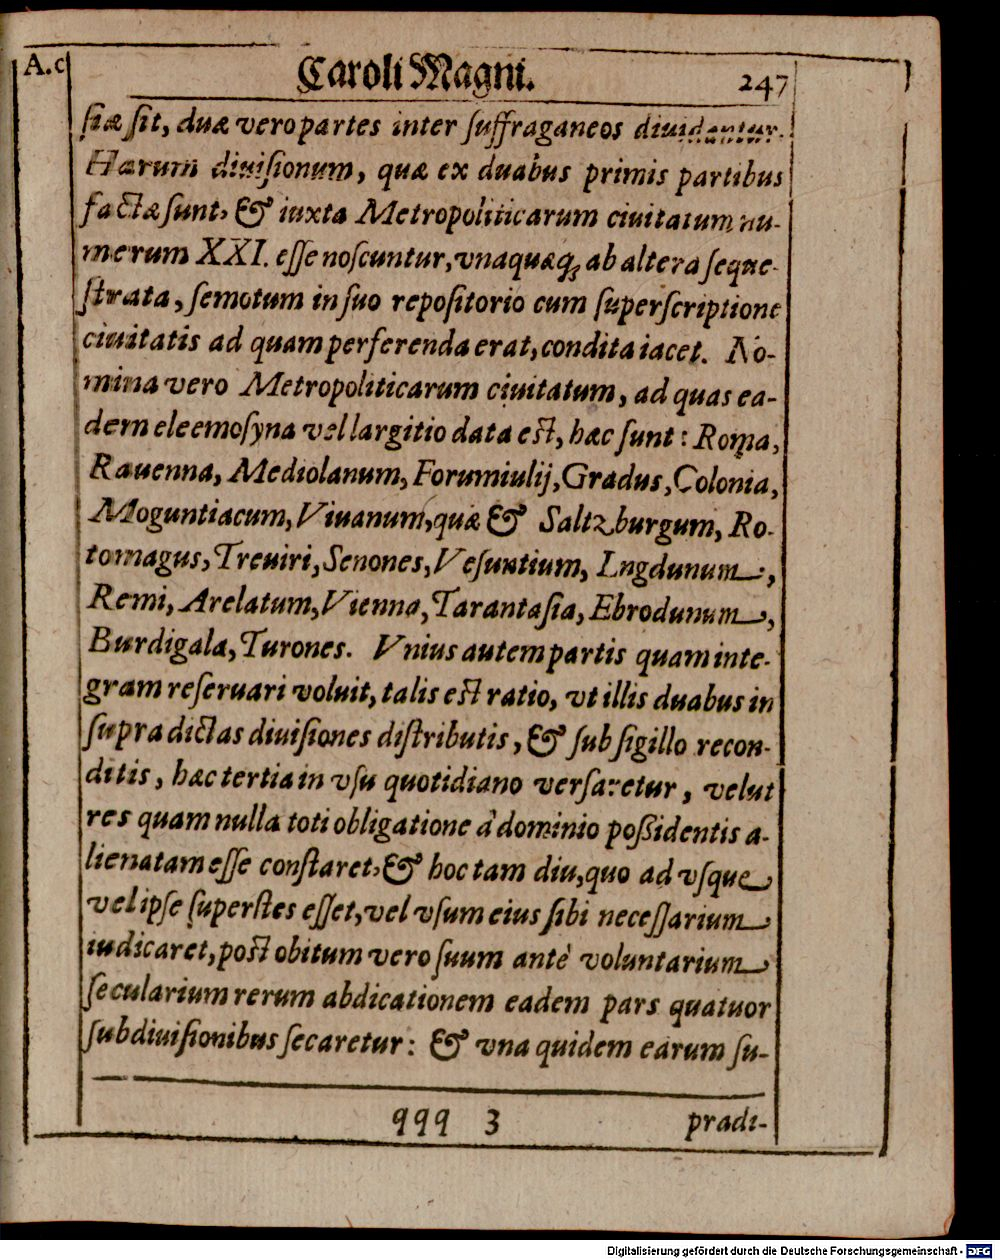 A.c
Caroli Magni.
247
ſiæ ſit, duæ vero partes inter ſuffraganeos diuidantur.
Harum diuiſionum, quæ ex duabus primis partibus
factæ ſunt, & iuxta Metropoliticarum ciuitatum nu-
merum XXI. eſſe noſcuntur, vnaquæq; ab altera ſeque-
ſtrata, ſemotum in ſuo repoſitorio cum ſuperſcriptione
ciuitatis ad quam perferenda erat, condita iacet. No-
mina vero Metropoliticarum ciuitatum, ad quas ea-
dem eleemoſyna vel largitio data eſt, hæc ſunt: Roma,
Rauenna, Mediolanum, Forumiulij, Gradus, Colonia,
Moguntiacum, Viuanum, quæ & Saltzburgum, Ro-
tomagus, Treuiri, Senones, Veſuntium, Lngdunum,
Remi, Arelatum, Vienna, Tarantaſia, Ebrodunum,
Burdigala, Turones. Vnius autem partis quam inte-
gram reſeruari voluit, talis eſt ratio, vt illis duabus in
ſupra dictas diuiſiones diſtributis, & ſub ſigillo recon-
ditis, hæc tertia in vſu quotidiano verſaretur, velut
res quam nulla toti obligatione à dominio poßidentis a-
lienatam eſſe conſtaret, & hoc tam diu, quo ad vſque
vel ipſe ſuperſtes eſſet, vel vſum eius ſibi neceſſarium
iudicaret, poſt obitum vero ſuum antè voluntarium
ſecularium rerum abdicationem eadem pars quatuor
ſubdiuiſionibus ſecaretur: & vna quidem earum ſu-
qqq 3
prædi-
Digitalisierung gefördert durch die Deutsche Forschungsgemeinschaft - DFG